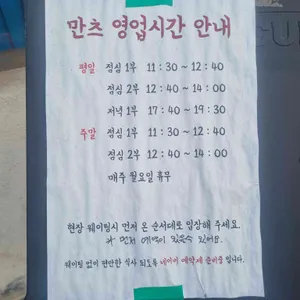 만츠 영업시간 안내
평일 점심 1부 11:30 ~ 12:40
점심 2부 12:40 ~ 14:00
저녁 1부 17:40 ~ 19:30
주말 점심 1부 11:30 ~ 12:40
점심 2부 12:40 ~ 14:00
매주 월요일 휴무
현장 웨이팅시 먼저 온 순서대로 입장해 주세요.
먼저 예약이 있을수 있어요.
웨이팅 없이 편안한 식사 되도록 네이버 예약제 입니다.